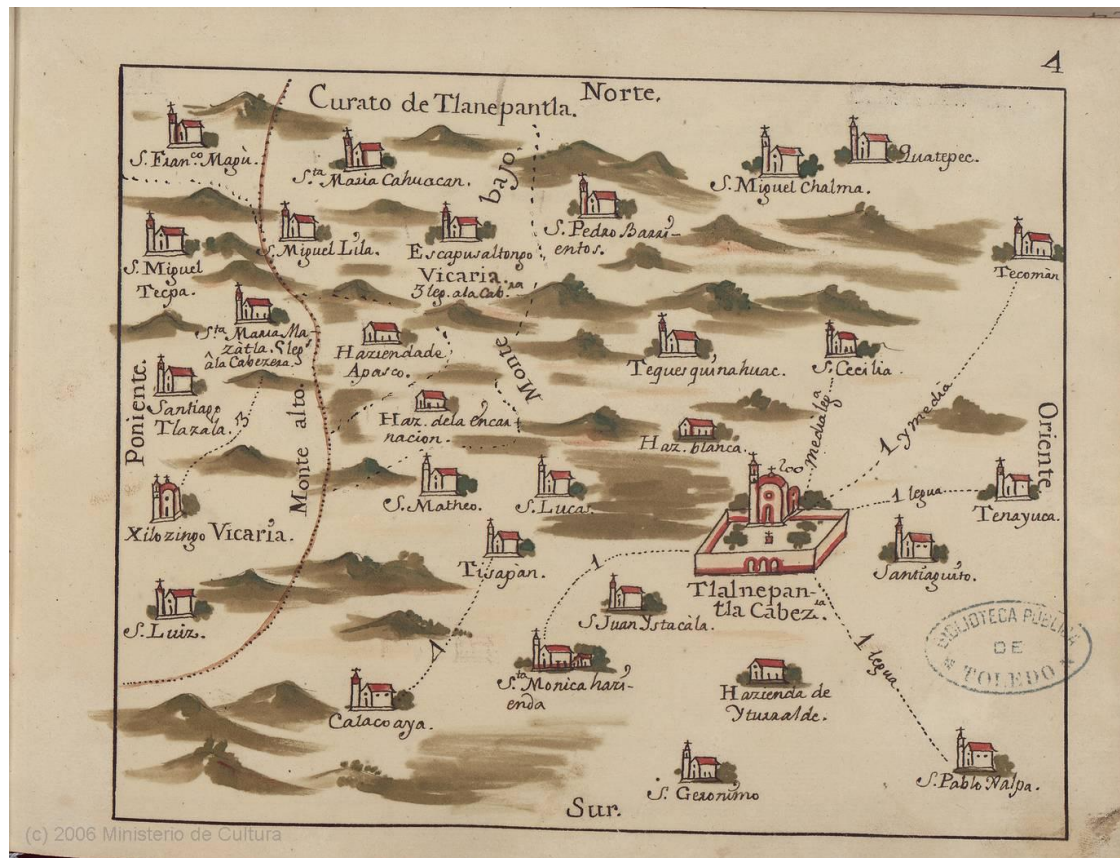 4
Norte.
Curato de Tlanepantla.
S. Fran.co Magù.
S.ta Maria Cahuacan.
S. Miguel Chalma.
Quatepec.
bajo.
S. Miguel
Tecpa.
S. Miguel Lila.
Escapusaltongo
Vicaria.
3 leg. a la Cab.ra
S. Pedro Barri-
entos.
Tecomàn
S.ta Maria Ma-
zàtla. 5 leg.s
â la Cabezera.
Hazienda de
Apasco.
Monte
Tequesquinahuac.
S. Cecilia.
Poniente.
Santiago
Tlazala.
3
Monte alto.
Haz. de la encar
nacion.
Haz. blanca.
media leg.a
1 y media
Oriente
Xilozingo Vicaria.
S. Matheo.
S. Lucas.
1 legua
Tenayuca.
Tisapàn.
1
Tlalnepan-
tla Cabez.ra
Santiaguito.
S. Luiz.
S Juan Ystacàla.
1
1 legua
BIBLIOTECA PUBLICA
DE
TOLEDO
S.ta Monica hazi-
enda
Hazienda de
Yturralde.
Calacoaya.
S. Geronimo
S. Pablo Xalpa.
Sur.
(c) 2006 Ministerio de Cultura